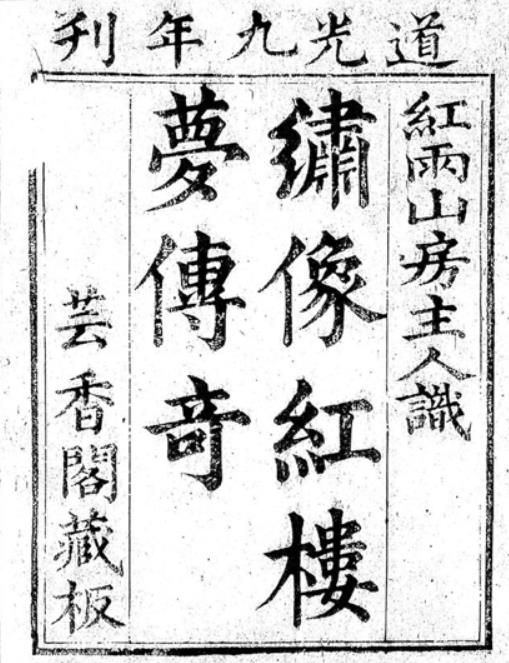 道光九年刊
紅雨山房主人識
繡像紅樓
夢傳奇
芸香閣藏板